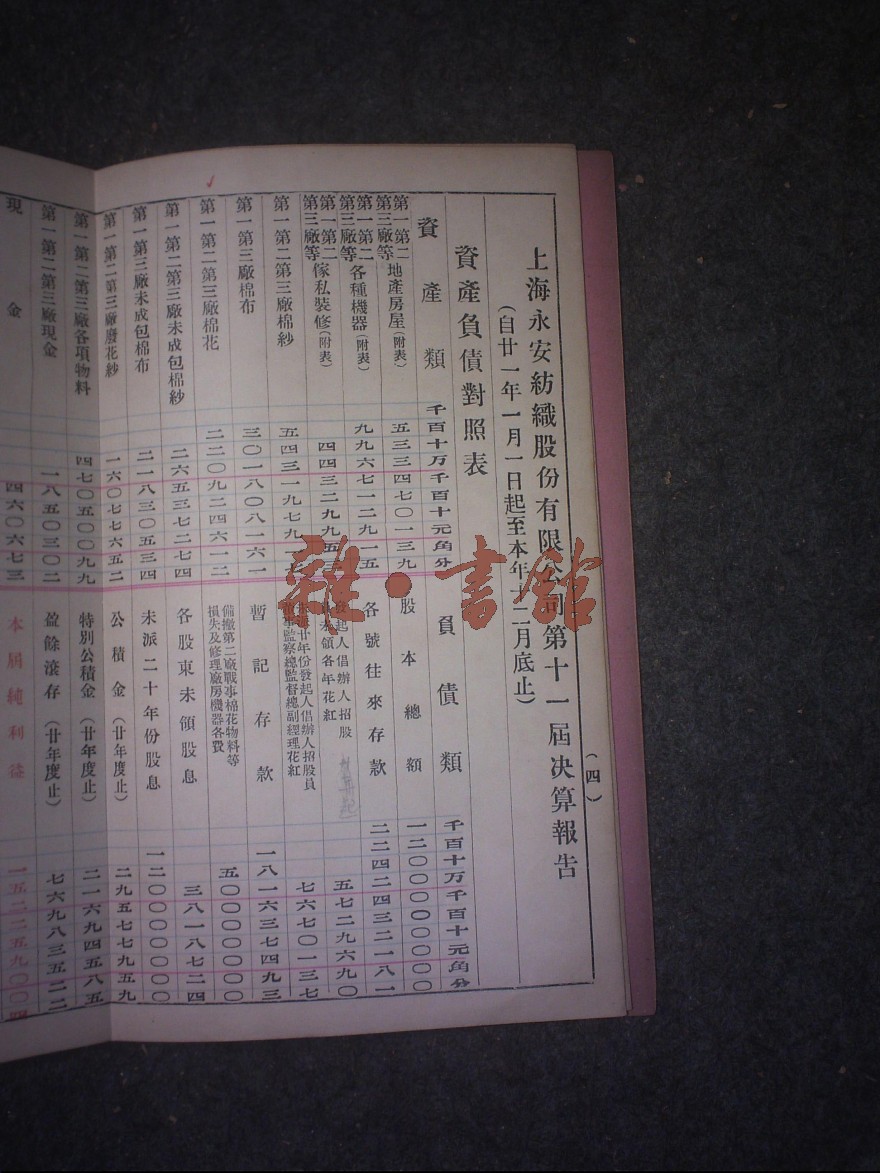 上海永安紡織股份有限公司第十一屆决算報告
(自廿一年一月一日起至本年十二月底止)
(四)
資產負債對照表
資產類
千百十万千百十元角分
第一第二第三廠等地產房屋(附表) 五三三四七〇一三九
第一第二第三廠等各種機器(附表) 九九六七一二九一五
第一第二第三廠等傢私裝修(附表)
第一第二第三廠棉紗
第一第三廠棉布 三〇一八〇八一六一
第一第二第三廠棉花 二二〇九二四六一二
第一第二第三廠未成包棉紗 二六五三七二七四
第一第三廠未成包棉布 二一八三〇五三四
第一第二第三廠廢花紗 一六〇七七六五二
第一第二第三廠各項物料 四七〇五〇〇九九
第一第二第三廠現金 一八五〇三〇二
現金 四六〇六七三
負債類
千百十万千百十元角分
股本總額 一二〇〇〇〇〇〇〇〇
各號往來存款 二二四二四三二一八一
發起人倡辦人招股員未領各年花紅 五七二九六九〇
未派廿年份發起人倡辦人招股員董事監察總監督總副經理花紅 七六七〇一三七
暫記存款 一八一六三七四九三
備撤第二廠戰事棉花物料等損失及修理廠房機器各費 五〇〇〇〇〇〇〇
各股東未領股息 三八一八七二四
未派二十年份股息 一二〇〇〇〇〇〇〇
公積金(廿年度止) 二九五七七九五九
特別公積金(廿年度止) 二一六九四五八五
盈餘滾存(廿年度止) 七六九八三五二二
本屆純利益 一五二二五九〇〇四
雜·書館